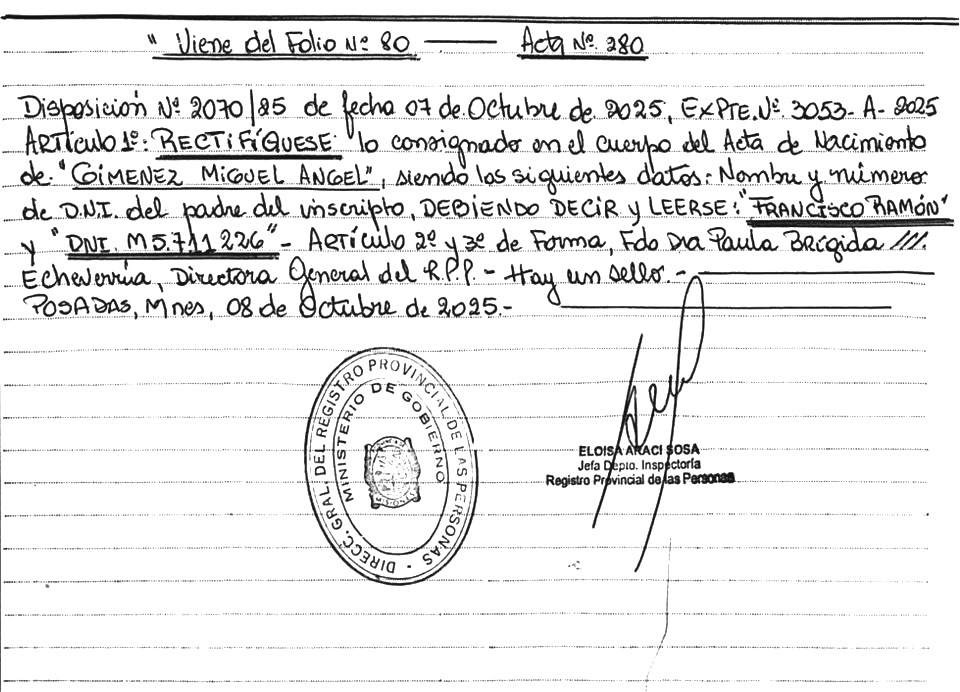 " Viene del Folio Nº 80 —— Acta Nº. 280
Disposición Nº 2070/25 de fecha 07 de Octubre de 2025, EXPTE.Nº 3053-A-2025
ARTículo 1º: RECTIFÍQUESE lo consignado en el cuerpo del Acta de Nacimiento
de "GIMENEZ MIGUEL ANGEL", siendo los siguientes datos: Nombre y número
de D.N.I. del padre del inscripto, DEBIENDO DECIR y LEERSE: "FRANCISCO RAMÓN"
y "DNI. M 5.711.226"- ARTículo 2º y 3º de Forma, Fdo Dra Paula Brígida ///.
Echeverría, Directora General del R.P.P. - Hay un sello.-
POSADAS, Mnes, 08 de Octubre de 2025.-
DIRECC. GRAL. DEL REGISTRO PROVINCIAL DE LAS PERSONAS
MINISTERIO DE GOBIERNO
ELOISA ARACI SOSA
Jefa Dpto. Inspectoría
Registro Provincial de las Personas